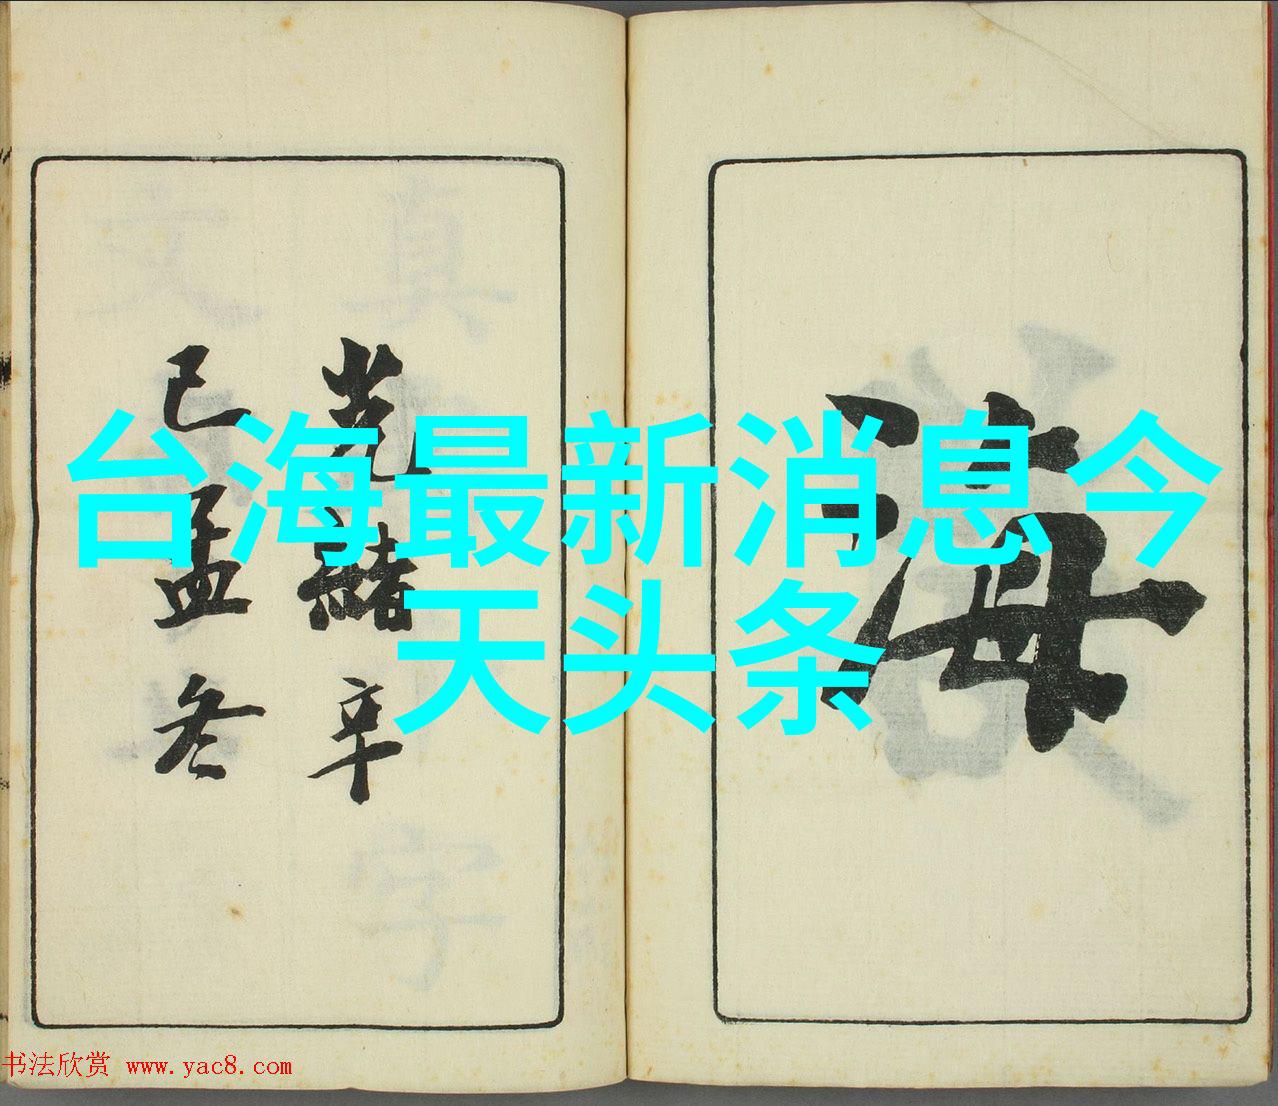 台海最新消息今
天头条
海
光緒辛
已孟冬
书法欣赏 www.yac8.com